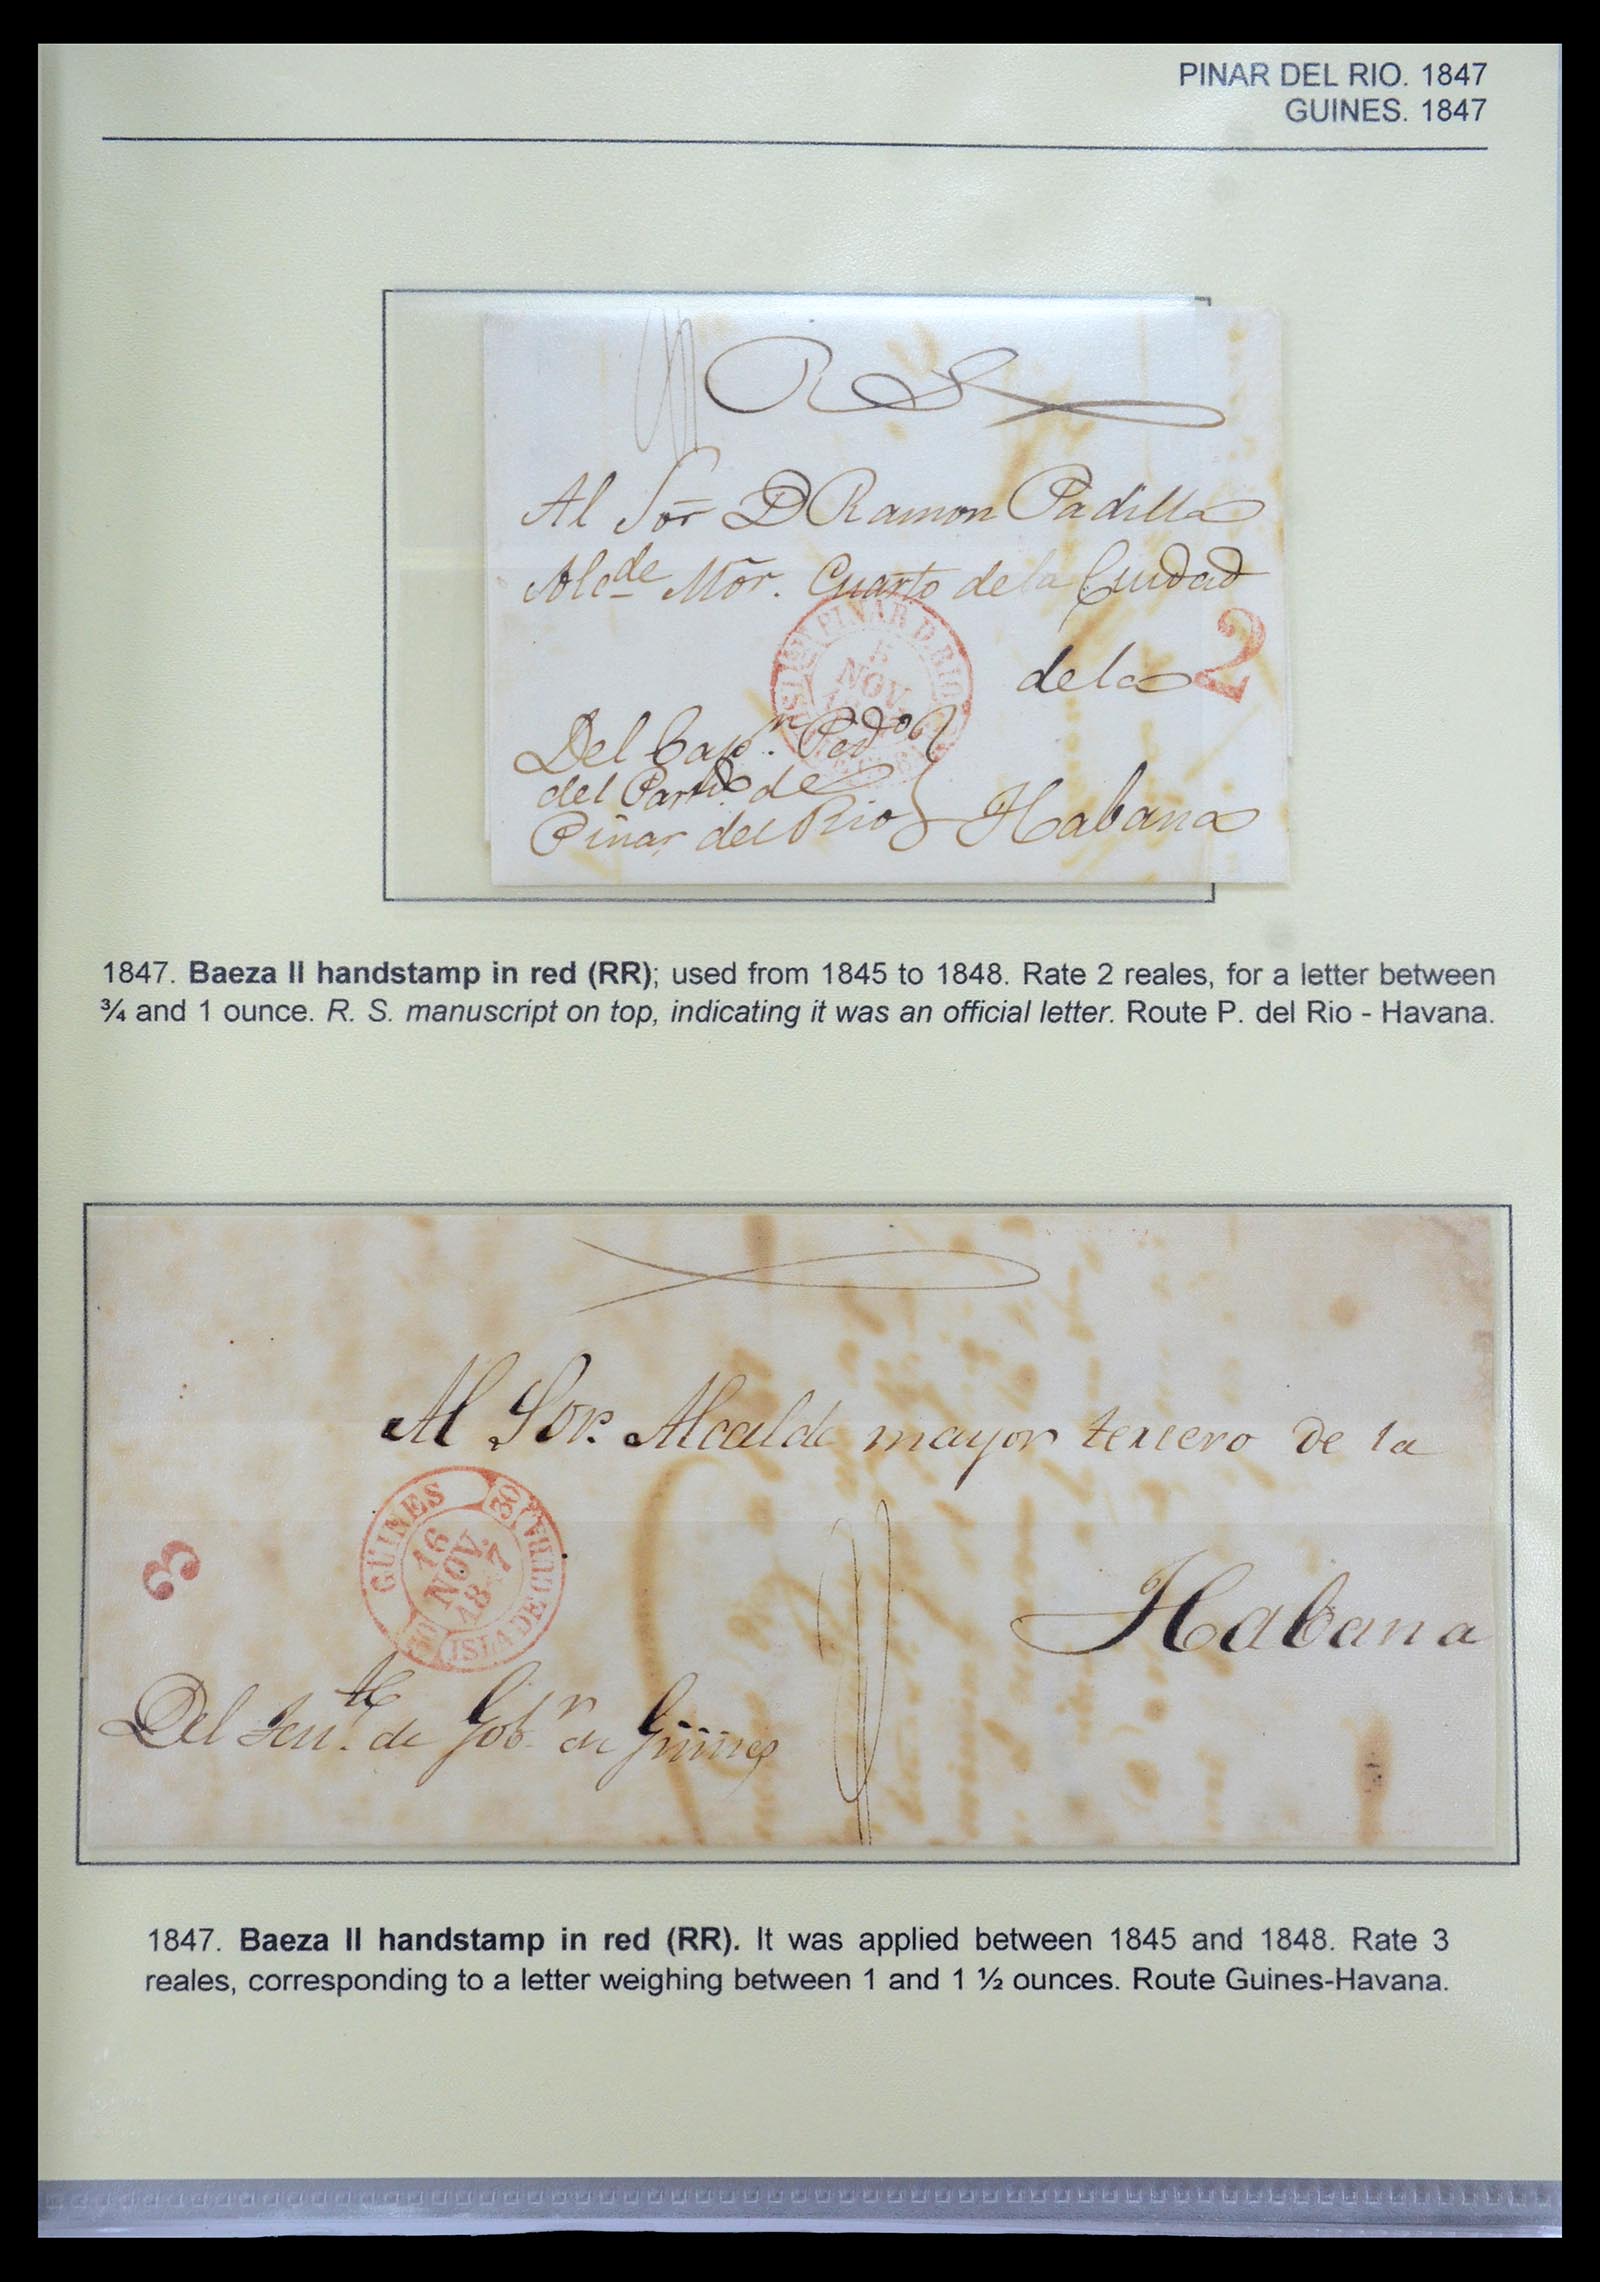 PINAR DEL RIO. 1847
GUINES. 1847
R S
Al Sor D Ramon Padilla
Alcde Mor. Cuarto de la Ciudad
PINAR D RIO
5
NOV.
2
de la
Del Capn. Pedo
del Partdo de
Pinar del Rio Habana
1847. Baeza II handstamp in red (RR); used from 1845 to 1848. Rate 2 reales, for a letter between
¾ and 1 ounce. R. S. manuscript on top, indicating it was an official letter. Route P. del Rio - Havana.
Al Sor. Alcalde mayor tercero de la
GUINES
30
16
NOV.
1847
30
ISLA DE CUBA.
3
Habana
Del Tente. de Gobr. de Güines
1847. Baeza II handstamp in red (RR). It was applied between 1845 and 1848. Rate 3
reales, corresponding to a letter weighing between 1 and 1 ½ ounces. Route Guines-Havana.